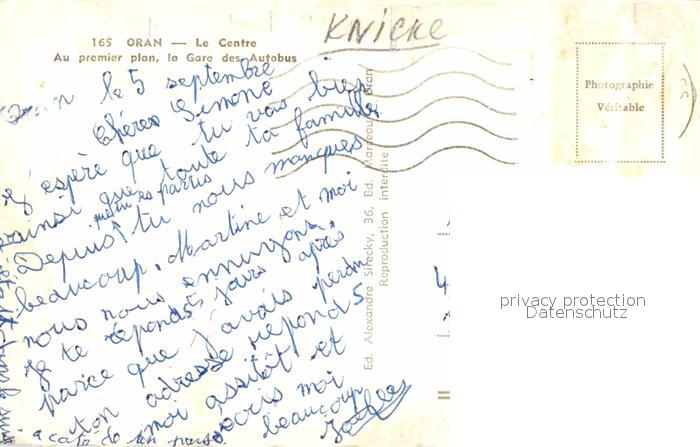 KNICKE
165 ORAN — Le Centre
Au premier plan, la Gare des Autobus
Photographie
Véritable
le 5 septembre
Chères Simone
J'espère que tu vas bien
ainsi que toute ta famille
que tu es partis
Depuis tu nous manques
beaucoup. Martine et moi
nous nous ennuyons.
Je te réponds jours après
parce que j'avais perdu
ton adresse répond
moi assitôt et
écris moi
beaucoup
Ed. Alexandre Sirecky, 36, Bd. Marceau, Oran
Reproduction interdite
privacy protection
Datenschutz